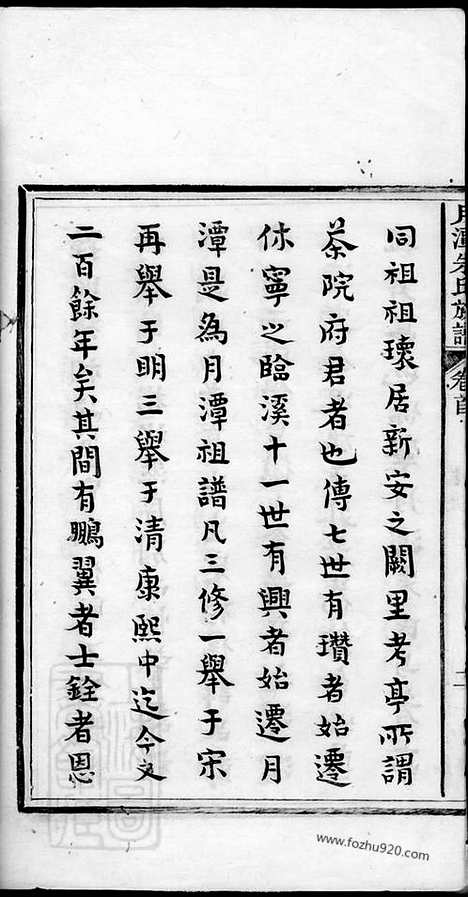 月潭朱氏族譜
卷首
二
同祖祖瓌居新安之闕里考亭所謂
茶院府君者也傳七世有瓚者始遷
休寧之臨溪十一世有興者始遷月
潭是為月潭祖譜凡三修一舉于宋
再舉于明三舉于清康熙中迄今又
二百餘年矣其間有鵬翼者士銓者恩
www.fozhu920.com